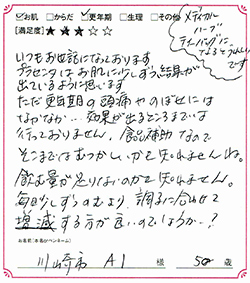 ☑お肌 □からだ ☑更年期 □生理 □その他
[満足度] ★★★☆☆
メディカル
ハーブ
ティーバッグに
なるとうれしい
です
いつもお世話になっております
プラセンタはお肌に少しずつ結果が
出ているように思います
ただ更年期の頭痛やのぼせには
なかなか…効果が出るところまでは
行っておりません。飲む補助なので
そこまではむつかしいかも知れませんね。
飲む量が足りないのかも知れません。
毎日少しずつのむより、調子に合わせて
増減する方が良いのでしょうか…?
お名前(本名/ペンネーム)
川崎市 A1 様 50歳